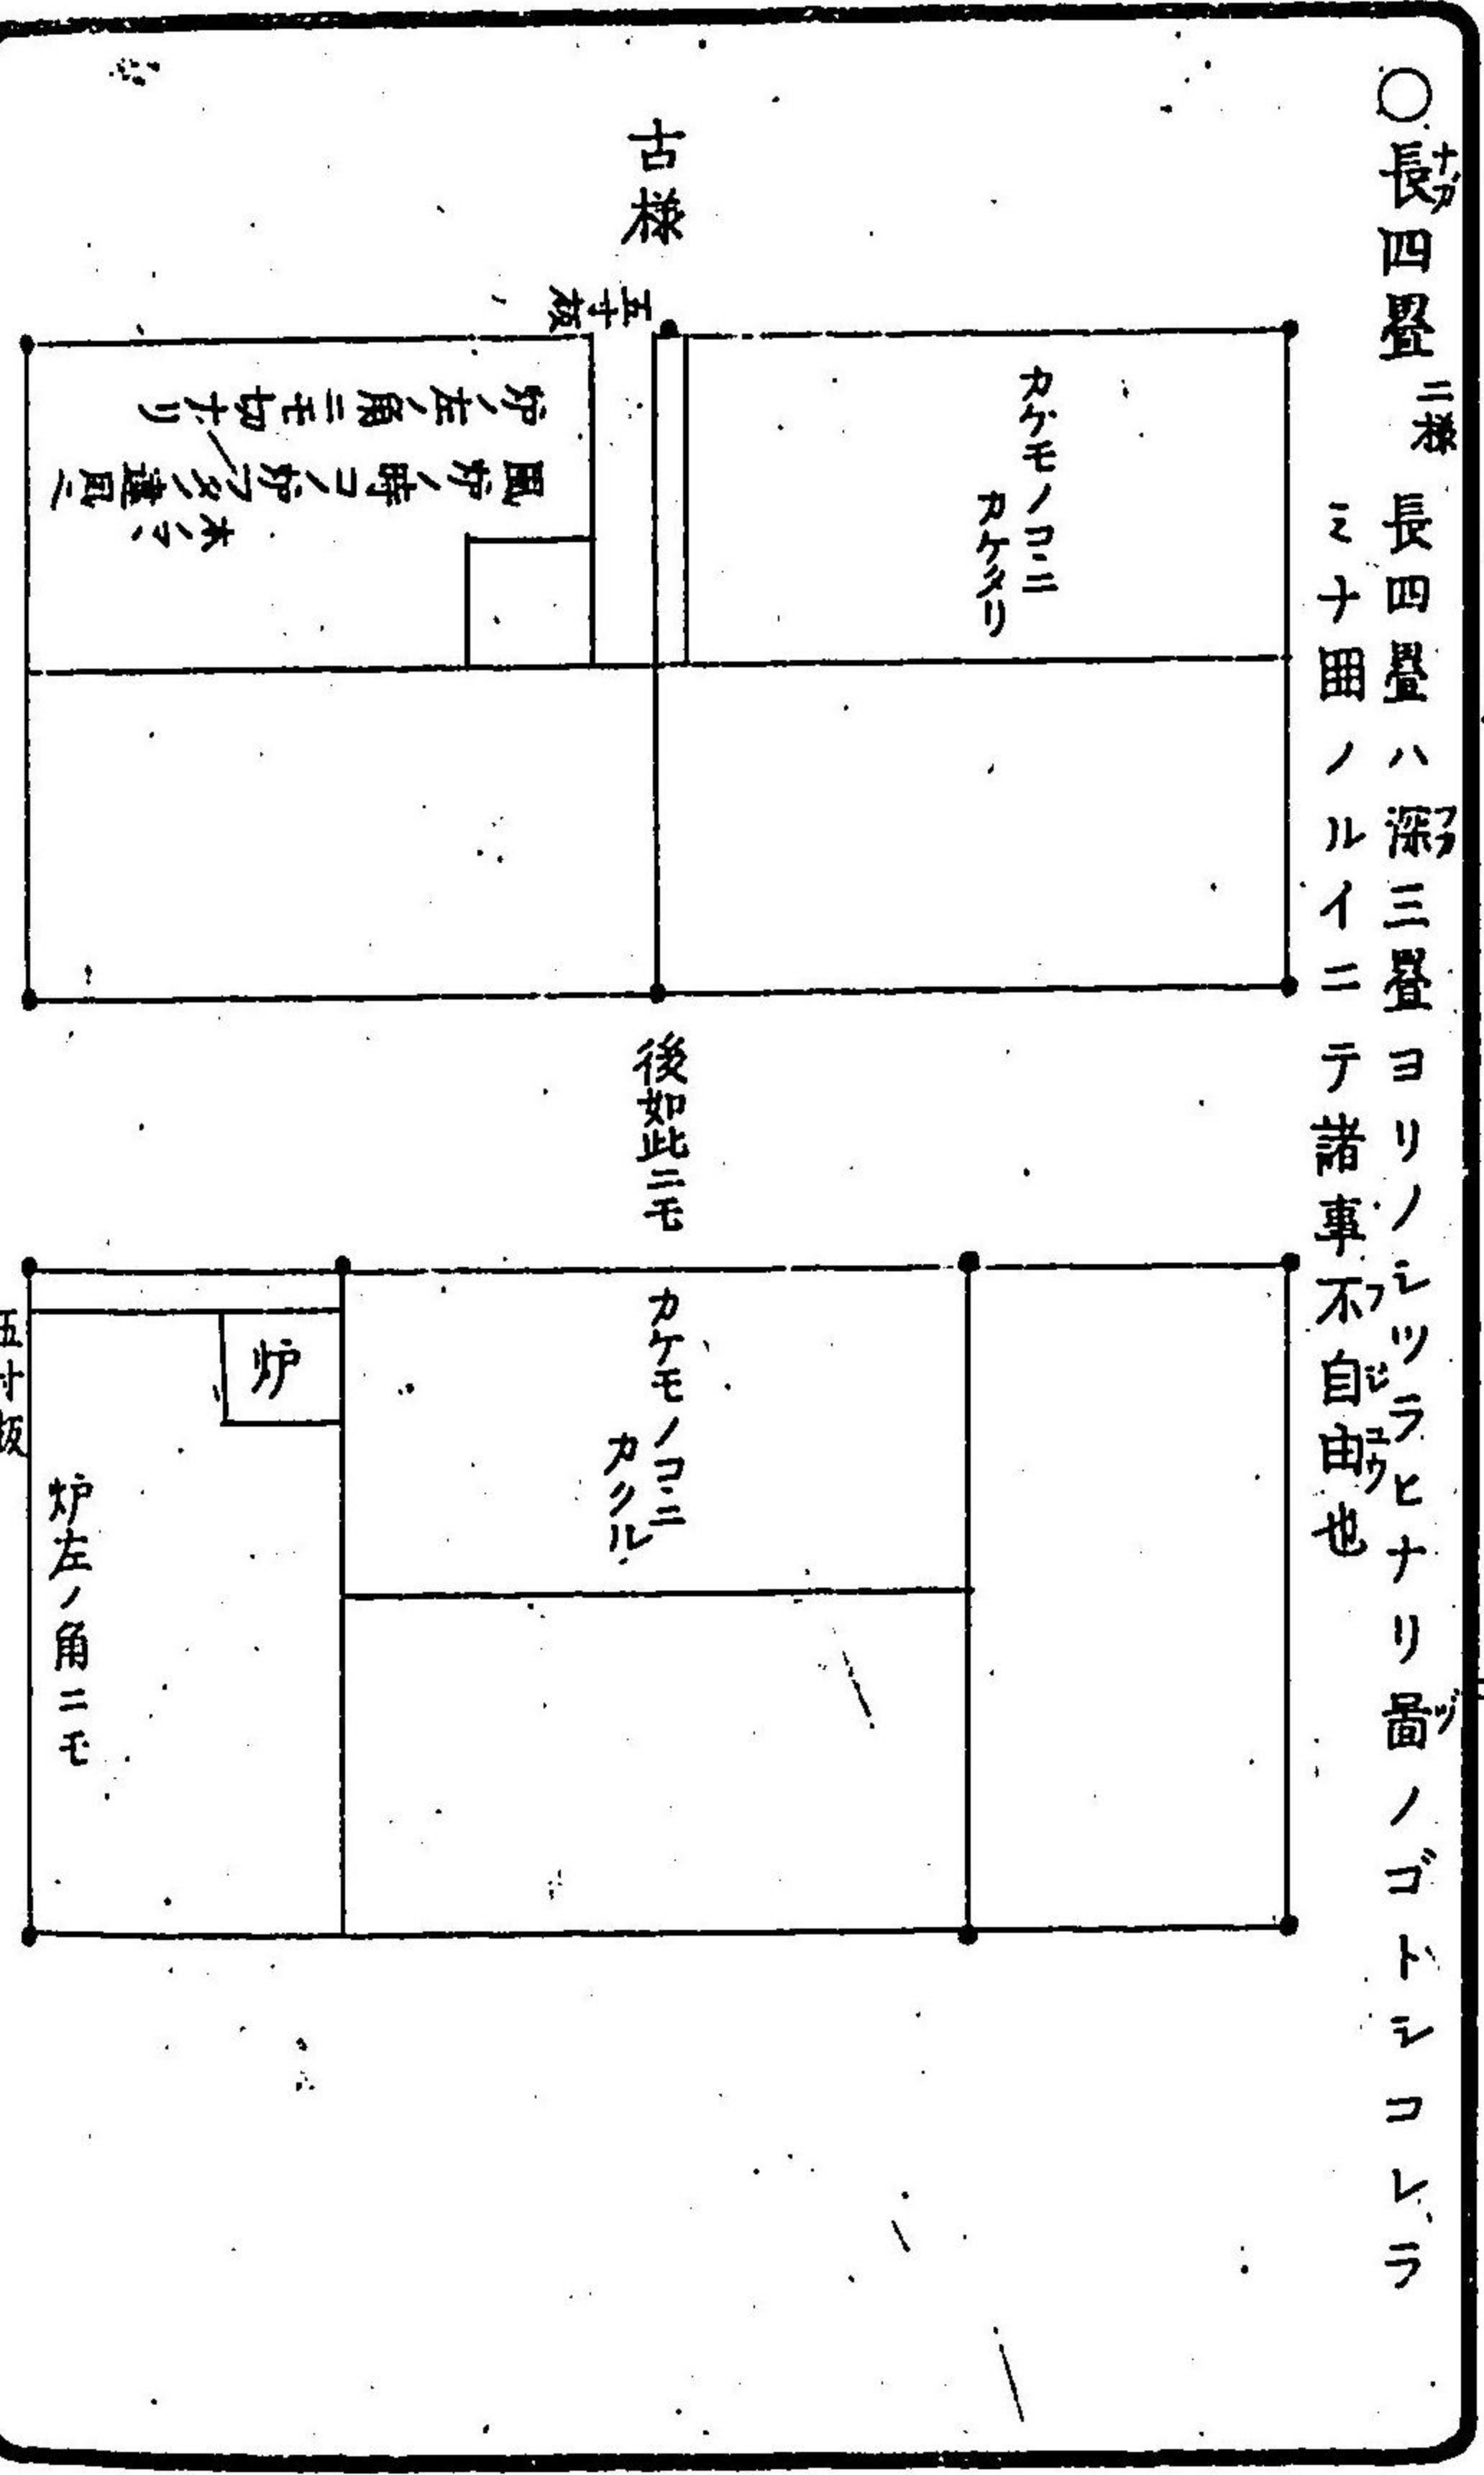 ○長四畳 二様 長四畳ハ深三畳ヨリノシツラヒナリ啚ノゴトシコレラ
ナガ
フカ
ヅ
ミナ囲ノルイニテ諸事不自由也
フジユウ
古様
五寸板
カケモノコヽニ
カケタリ
炉ノ左ノ角ニモ切ナリ
風炉ノ時コノ炉フタノ
後如此ニモ
カケモノコヽニ
カクル
炉
炉左ノ角ニモ
五寸板